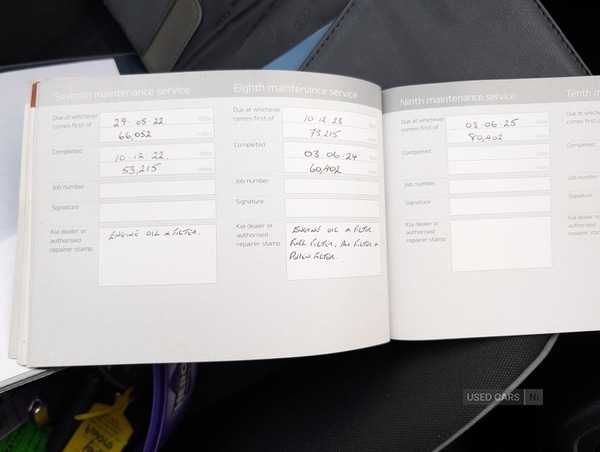 Seventh maintenance service
Due at whichever comes first of
29.05.22 date
66,052 miles
Completed
10.12.22. date
53,215 miles
Job number
Signature
Kia dealer or authorised repairer stamp
ENGINE OIL & FILTER.
Eighth maintenance service
Due at whichever comes first of
10.12.23 date
73,215 miles
Completed
03.06.24 date
60,402 miles
Job number
Signature
Kia dealer or authorised repairer stamp
ENGINE OIL & FILTER
FUEL FILTER, AIR FILTER &
POLLEN FILTER.
Ninth maintenance service
Due at whichever comes first of
03.06.25 date
80,402 miles
Completed
date
miles
Job number
Signature
Kia dealer or authorised repairer stamp
Tenth m
Due at which
comes first
Completed
Job number
Signature
Kia dealer
authorised
repairer
USED CARS NI